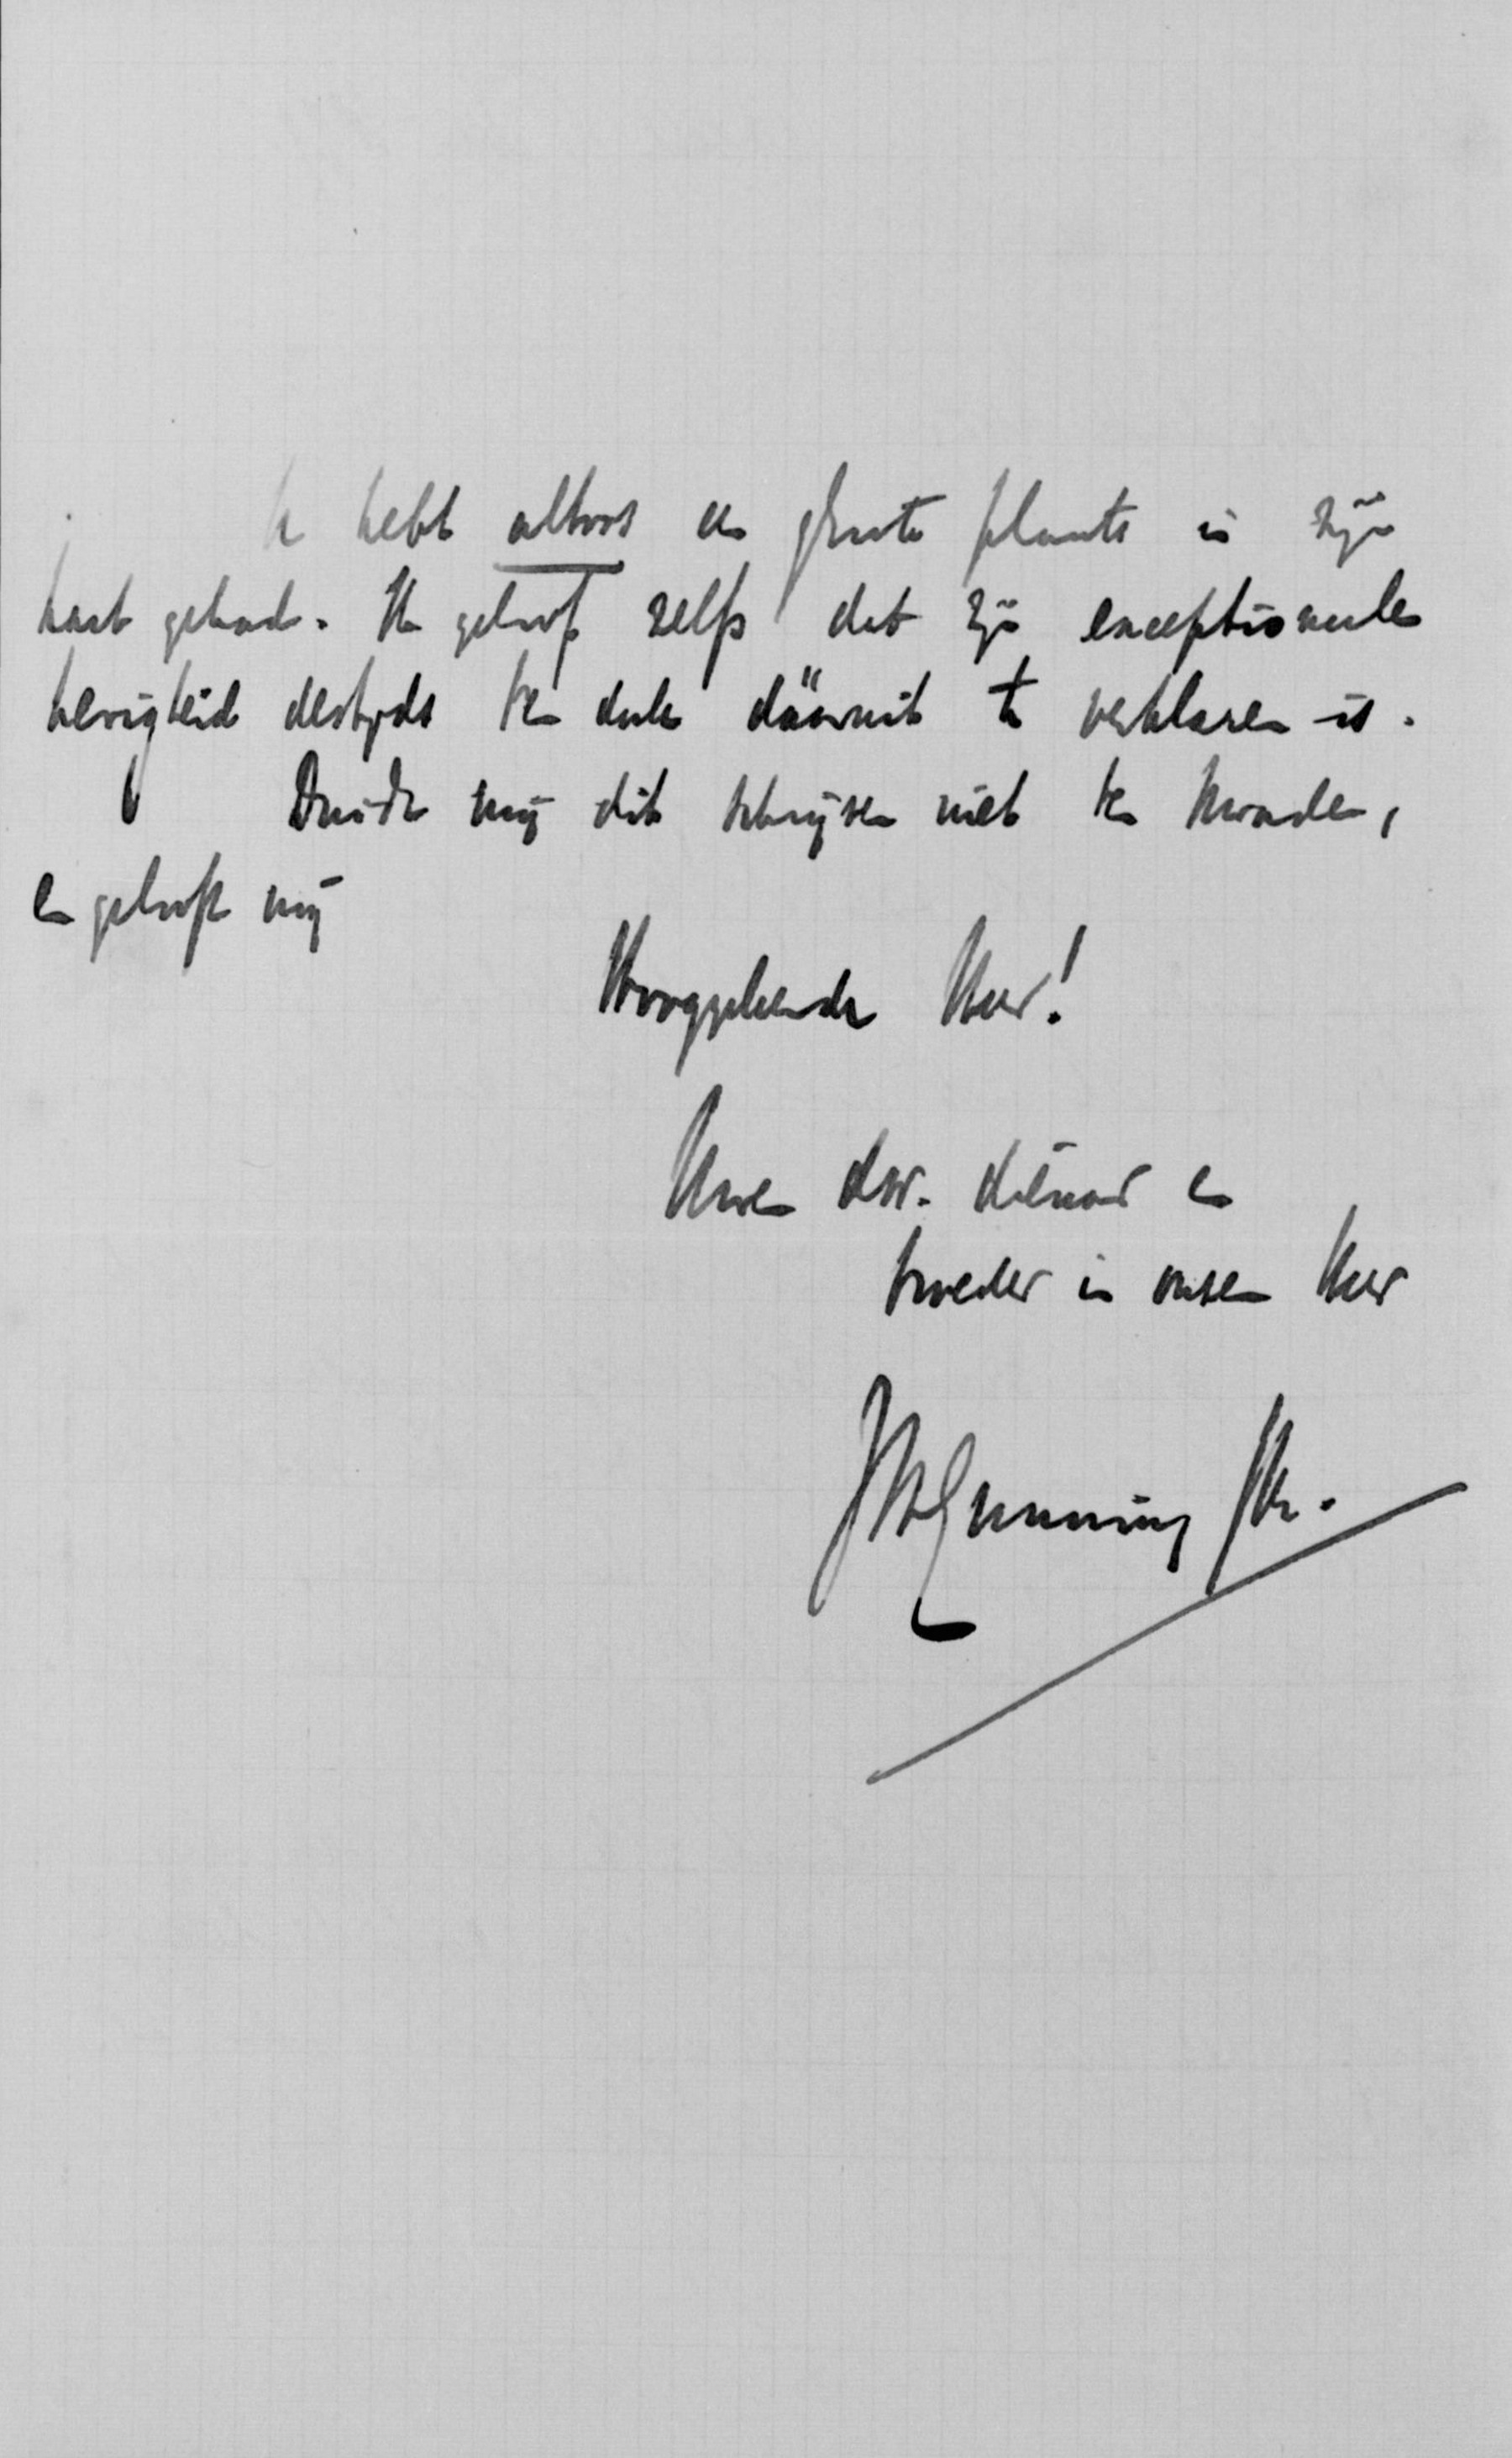 U hebt altoos een groote plaats in zijn
hart gehad. Ik geloof zelfs dat zijn exceptioneele
hevigheid destijds ten deele dáaruit te verklaren is.
Duid mij dit schrijven niet ten kwade,
en geloof mij
Hooggeleerde Heer!
Uwen dw. dienaar en
broeder in onzen Heer
JHGunning JHr.